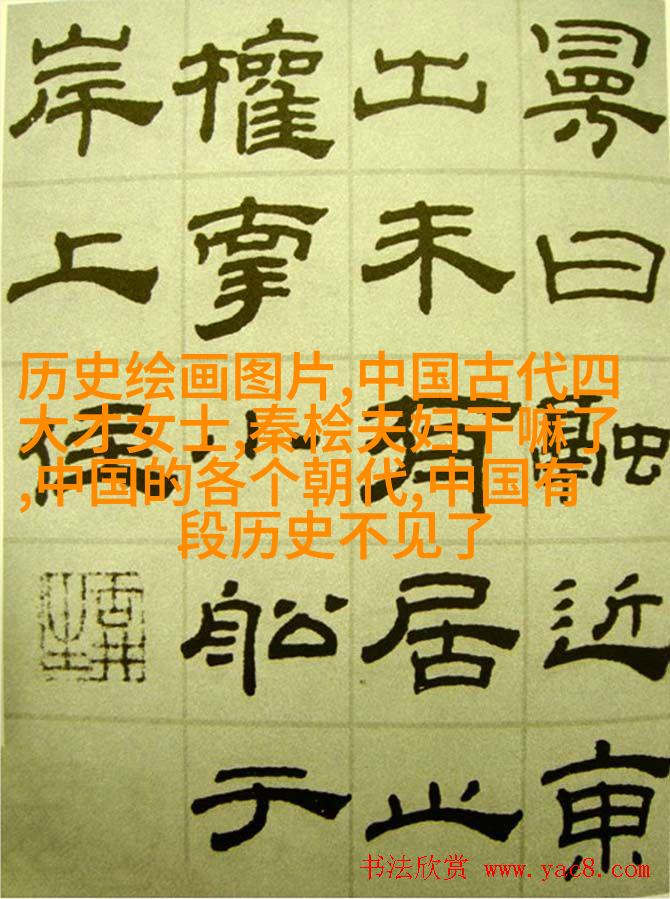 曰融近東
出未有居止
權牽小船于
岸上住
历史绘画图片,中国古代四
大才女士,秦桧夫妇干嘛了
,中国的各个朝代,中国有
段历史不见了
书法欣赏 www.yac8.com